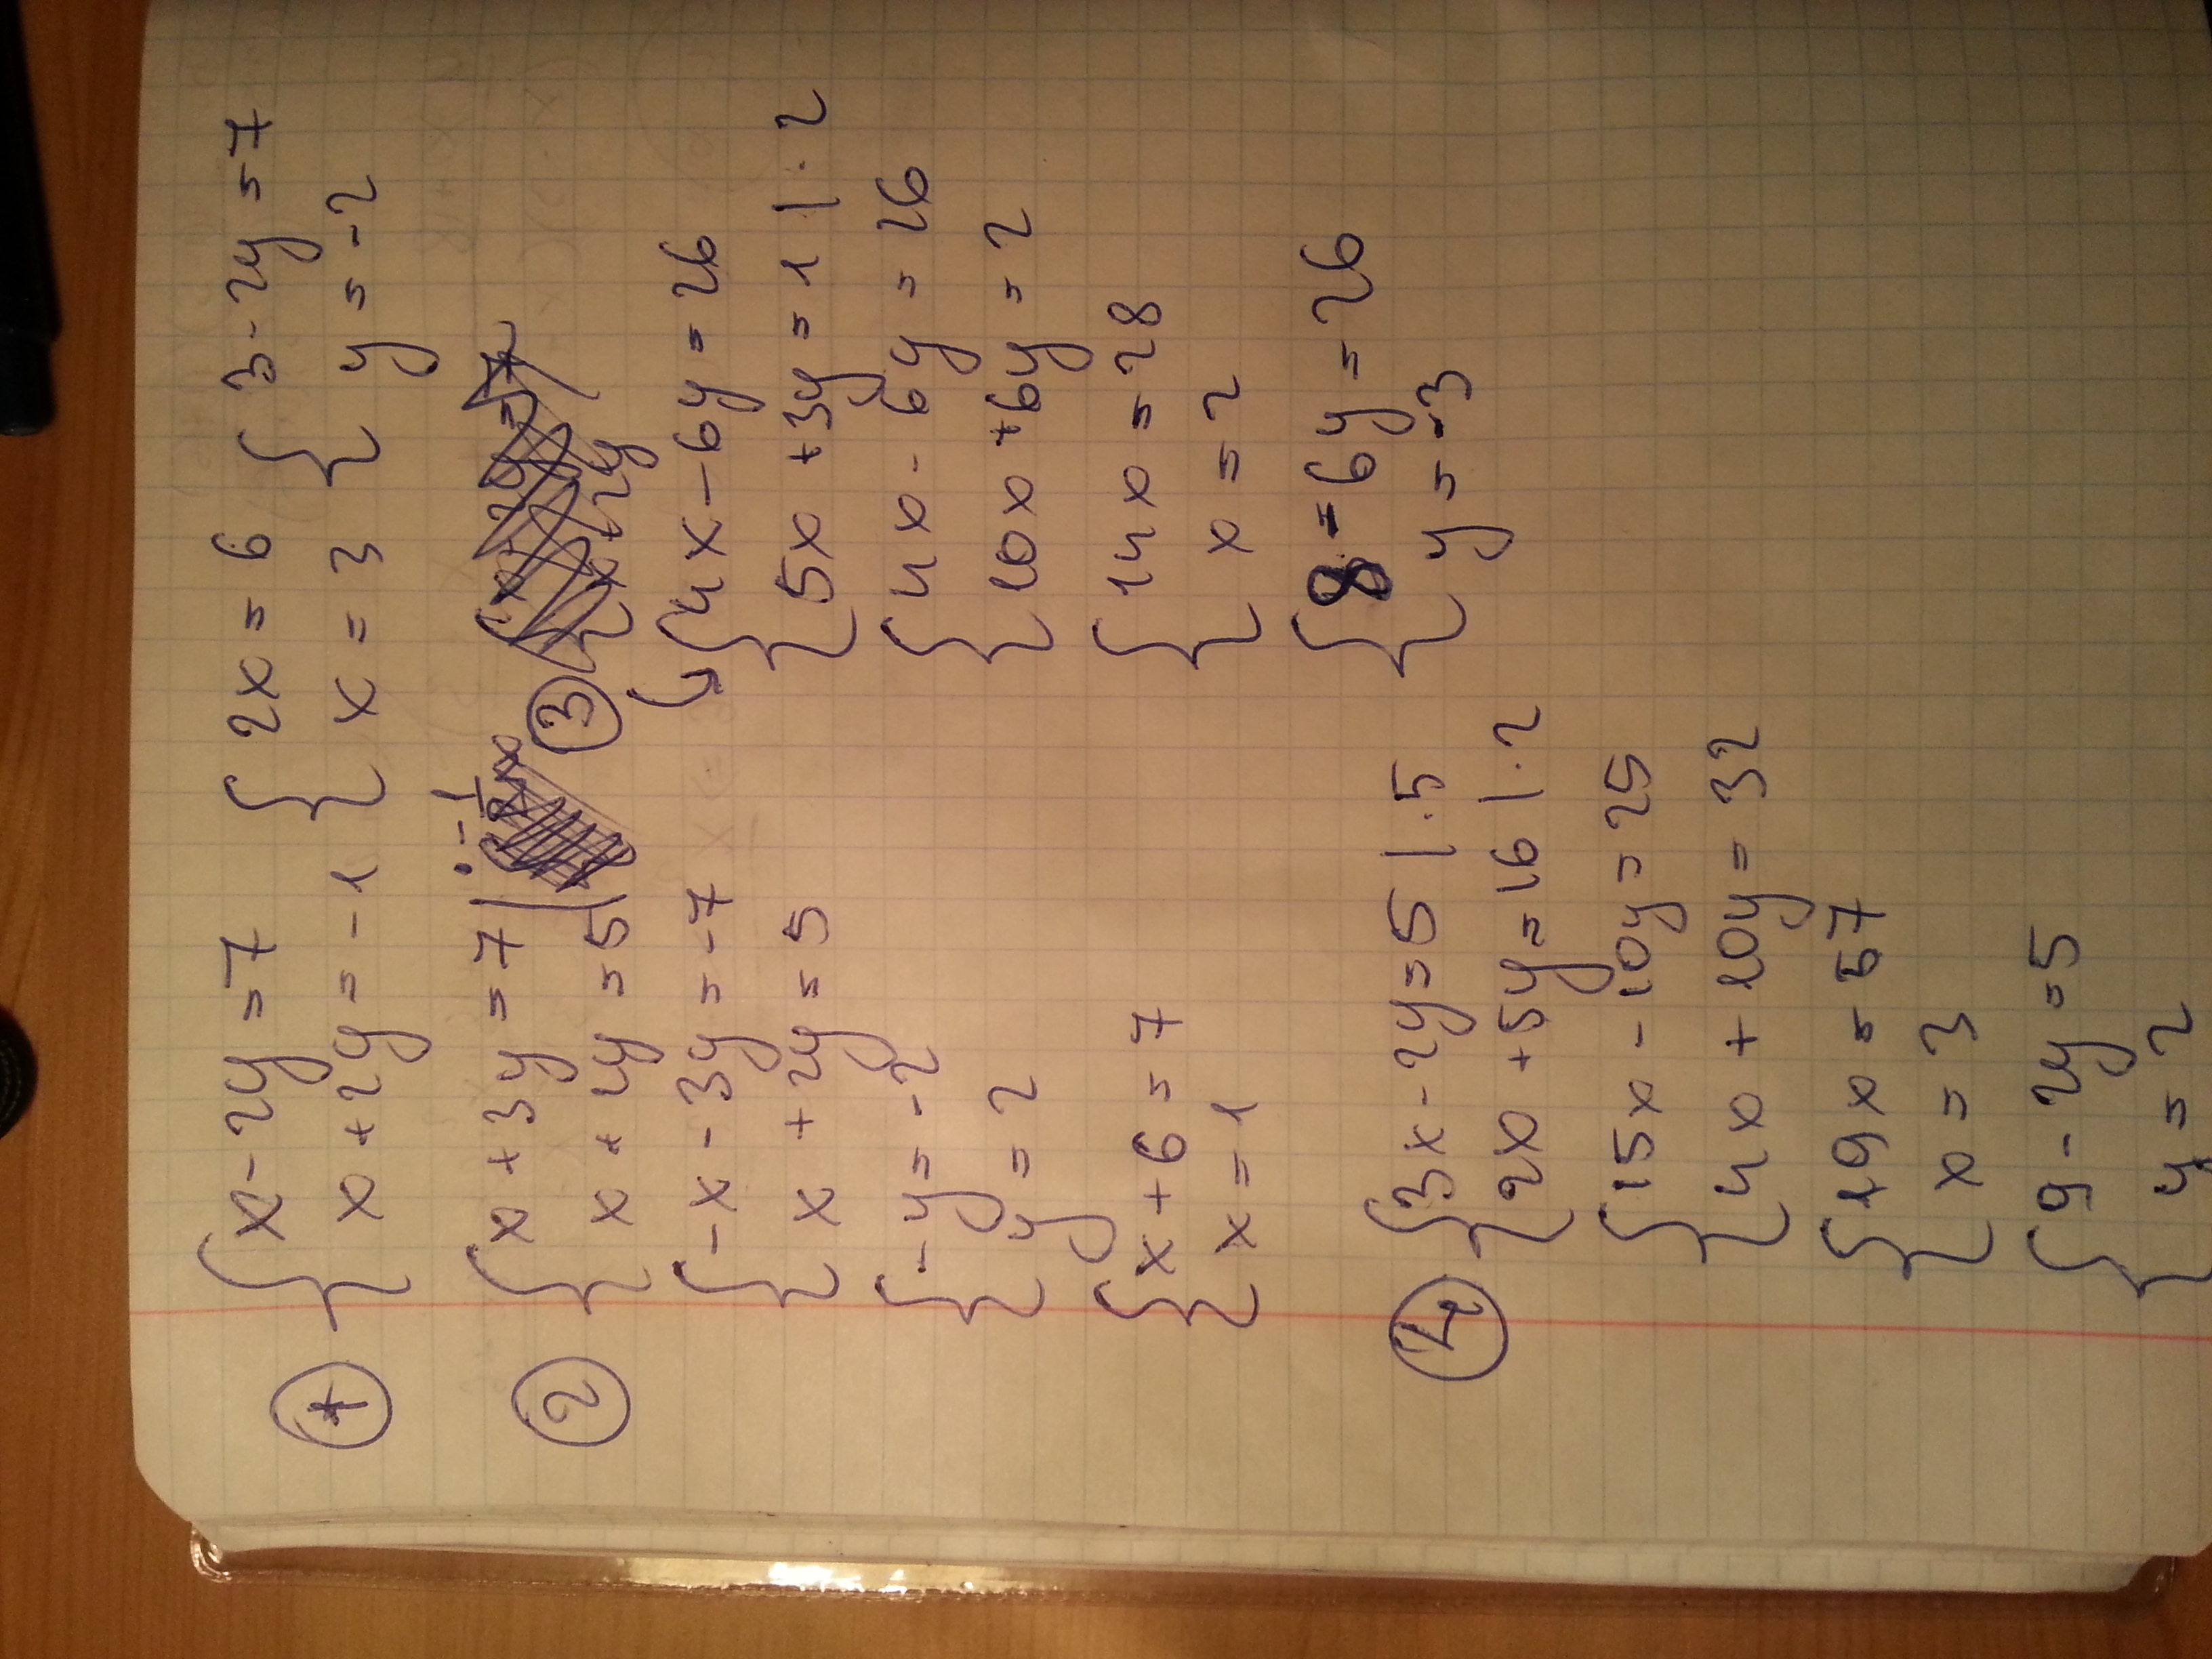 ① { x - 2y = 7 { 2x = 6 { 3 - 2y = 7
x + 2y = -1 x = 3 y = -2
② { x + 3y = 7 | · -1
x + 2y = 5 |
{ -x - 3y = -7
x + 2y = 5
{ -y = -2
y = 2
{ x + 6 = 7
x = 1
③
{ 4x - 6y = 26
5x + 3y = 1 | · 2
{ 4x - 6y = 26
10x + 6y = 2
{ 14x = 28
x = 2
{ 8 - 6y = 26
y = -3
④ { 3x - 2y = 5 | · 5
2x + 5y = 16 | · 2
{ 15x - 10y = 25
4x + 10y = 32
{ 19x = 57
x = 3
{ 9 - 2y = 5
y = 2